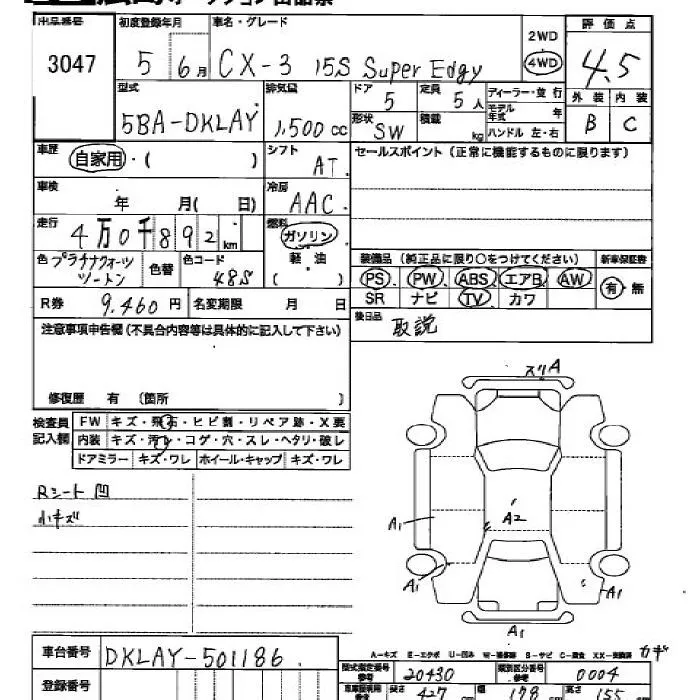 オークション出品票
出品番号 3047
初度登録年月 5 6月
車名・グレード CX-3 15S Super Edgy
2WD
4WD
評価点 4.5
外装 B
内装 C
型式 5BA-DKLAY
排気量 1,500 cc
ドア 5
定員 5人
形状 SW
積載 kg
ディーラー・並行
モデル年式 年
ハンドル 左・右
車歴 自家用・( )
シフト AT
セールスポイント (正常に機能するものに限ります)
車検 年 月( 日)
冷房 AAC
走行 4万0千892km
燃料 ガソリン
軽油
( )
色 プラチナクォーツ
ツートン
色替
色コード 48S
装備品 (純正品に限り○をつけてください)
新車保証書
PS PW ABS エアB AW
SR ナビ TV カワ
有・無
R券 9,460円
名変期限 月 日
後日品 取説
注意事項申告欄(不具合内容等は具体的に記入して下さい)
修復歴 有 (箇所 )
検査員記入欄
FW キズ・飛石・ヒビ割・リペア跡・X要
内装 キズ・汚レ・コゲ・穴・スレ・ヘタリ・破レ
ドアミラー キズ・ワレ ホイール・キャップ キズ・ワレ
Rシート凹
小キズ
スリA
A2
A1
A1
A1
A1
車台番号 DKLAY-501186
登録番号
A-キズ E-エクボ U-凹み
S-サビ C-腐食
カギ
型式指定番号 参考 20430
類別区分番号 参考 0004
長さ 427 cm
幅 178 cm
高さ 155 cm